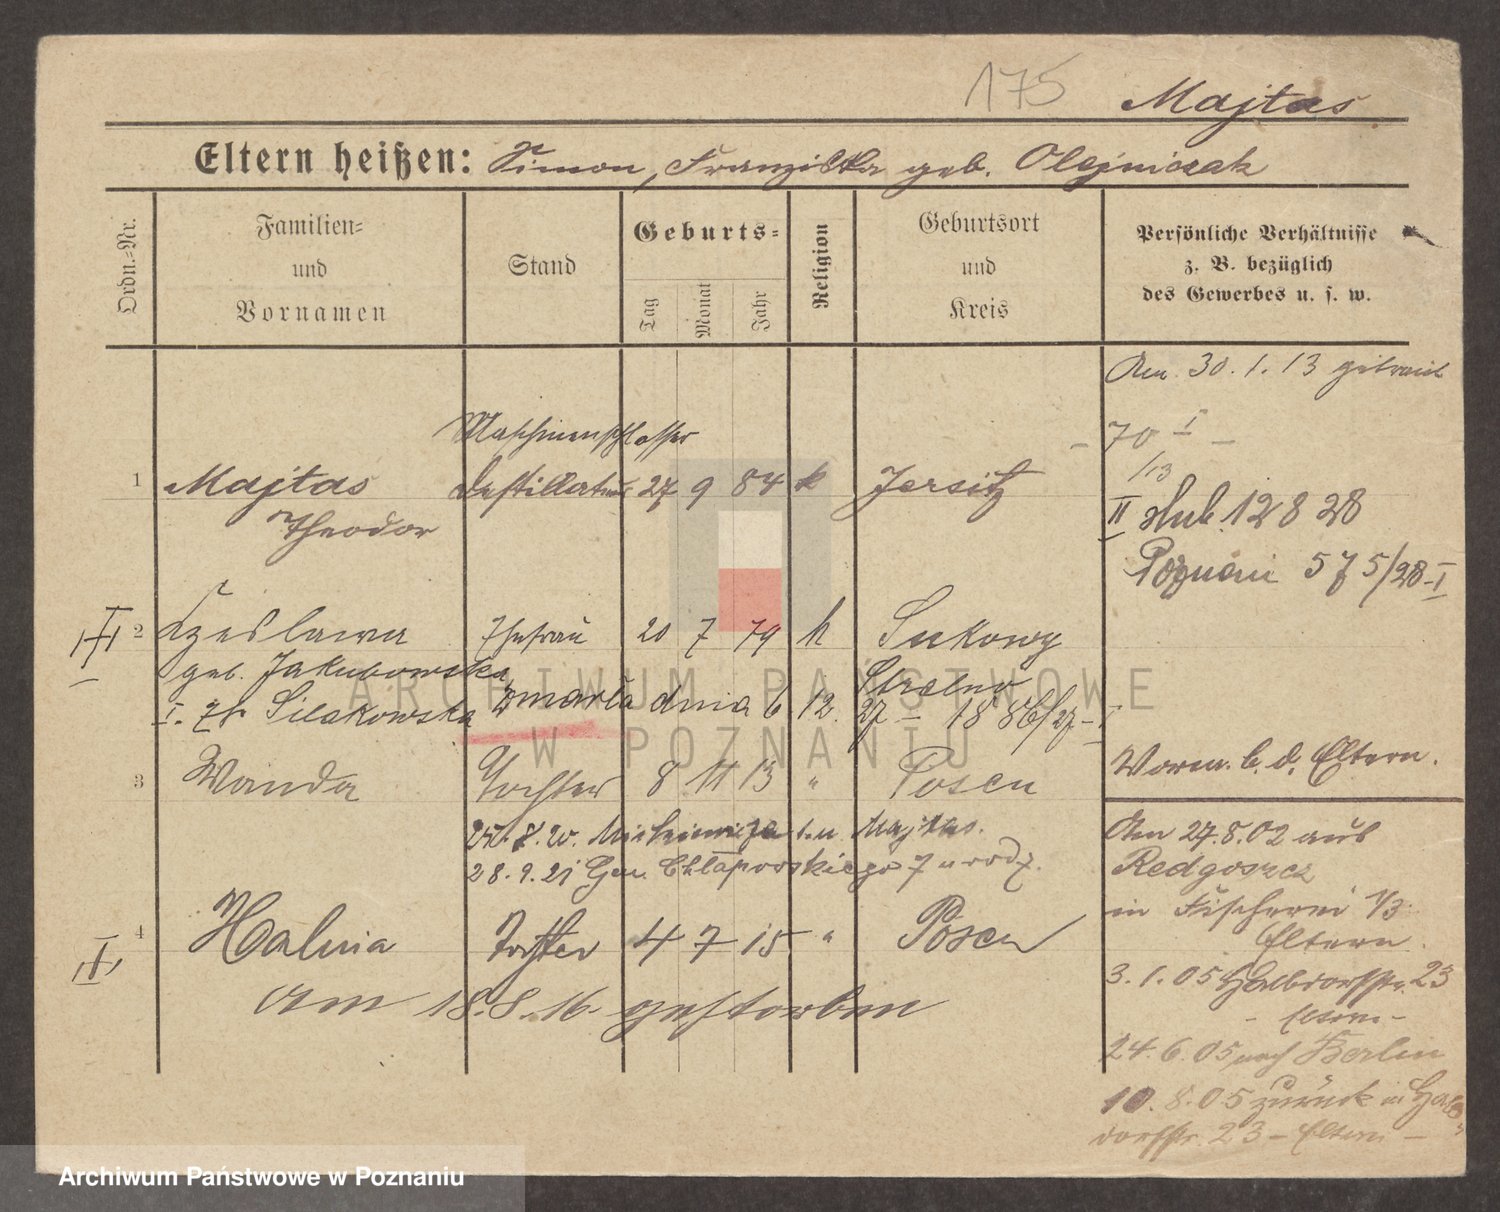 175 Majtas
Eltern heißen: Simon, Franziska geb. Olejniczak
Ordn.-Nr.
Familien-
und
Vornamen
Stand
Geburts-
Tag
Monat
Jahr
Religion
Geburtsort
und
Kreis
Persönliche Verhältnisse
z. B. bezüglich
des Gewerbes u. s. w.
Am 30.1.13 getraut
Maschinenschlosser
- 70 I -
/13
1 Majtas Destillateur 27 9 84 k Jersitz
Theodor
II slub 12 8 28
Poznań 575/28-I
II 2 Czeslawa Ehefrau 20 7 79 k Sukowy
geb. Jakubowska Strelno
I. zmarła dnia 6 12. 27 - 1886/27-I
3 Wanda Tochter 8 11 13 " Posen
Worm. b. d. Eltern.
25.8.20. Mickiewicza Majtas.
28.9.21 Gen. Chłapowskiego 7 u rodz.
I 4 Halina Tochter 4 7 15 " Posen
Am 18.8.16. gestorben
Am 27.8.02 aus
Redgoszcz
in Fischerei 1/3
Eltern.
3.1.05 Halbdorfstr. 23
- Eltern -
24.6.05 nach Berlin
10.8.05 zurück in Halb-
dorfstr. 23 - Eltern -
ARCHIWUM PAŃSTWOWE
W POZNANIU
Archiwum Państwowe w Poznaniu